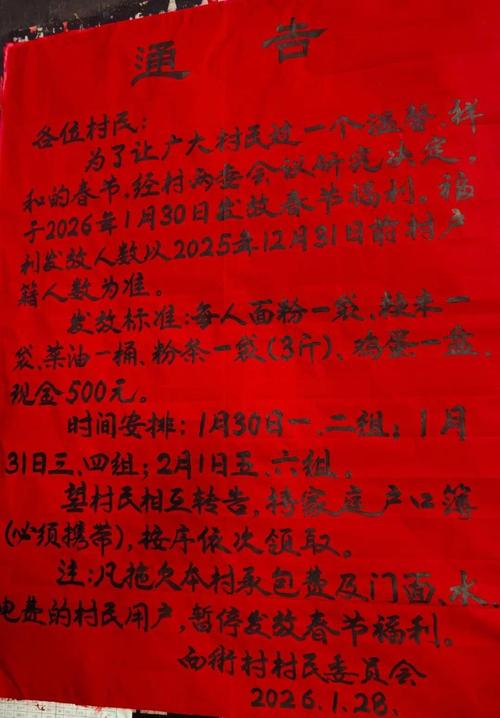 通告
各位村民:
为了让广大村民过一个温馨、祥
和的春节,经村两委会议研究决定,
于2026年1月30日发放春节福利。福
利发放人数以2025年12月31日前村户
籍人数为准。
发放标准:每人面粉一袋、粳米一
袋、菜油一桶、粉条一袋(3斤)、鸡蛋一盘、
现金500元。
时间安排:1月30日一、二组;1月
31日三、四组;2月1日五、六组。
望村民相互转告,持家庭户口簿
(必须携带),按序依次领取。
注:凡拖欠本村承包费及门面、水、
电费的村民用户,暂停发放春节福利。
西街村村民委员会
2026.1.28.